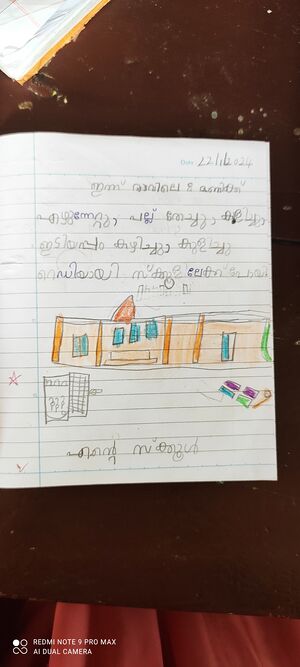 Date 22/1/2024
ഇന്ന് രാവിലെ 8 മണിക്ക്
എഴുന്നേറ്റു, പല്ല് തേച്ചു, കുളിച്ചു,
ഇഡ്ഡിയപ്പം കഴിച്ചു, കുടിച്ചു
റെഡിയായി സ്കൂളിലേക്ക് പോയി
എന്റെ സ്കൂൾ
REDMI NOTE 9 PRO MAX
AI DUAL CAMERA